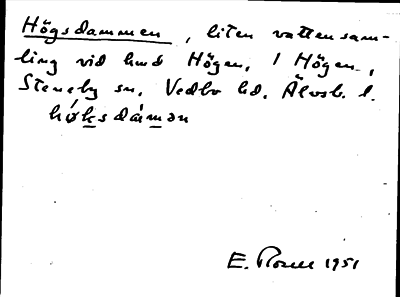 Högsdammen, liten vattensam-
ling vid hmd Högen, 1 Högen,
Steneby sn, Vedbo hd, Älvsb. l.
hǿksdàmən
E. Rosell 1951